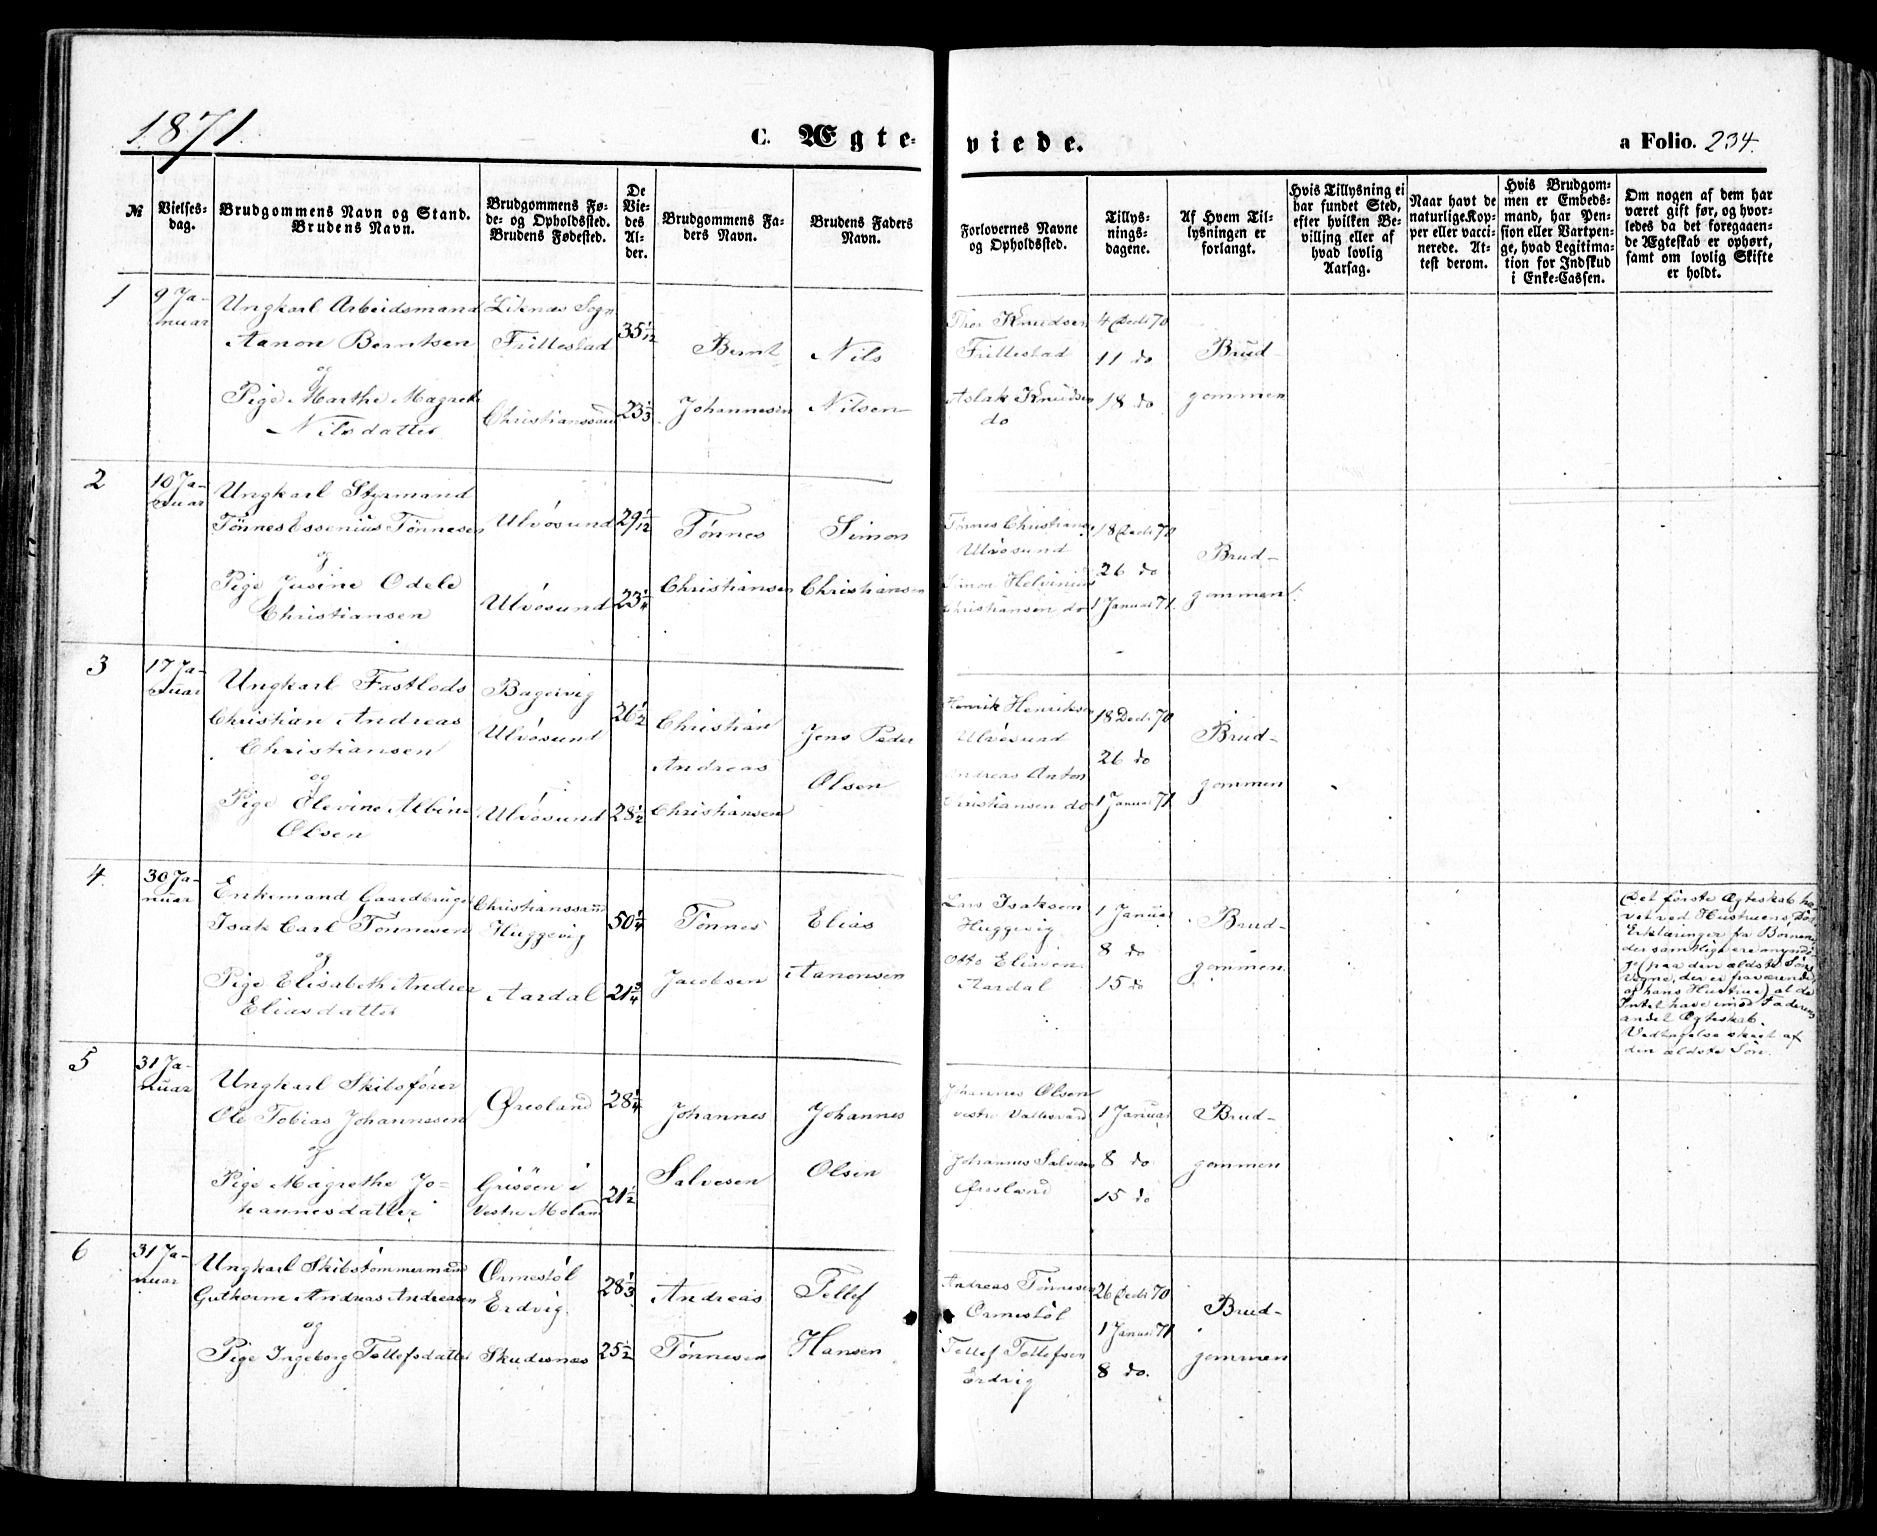 1871
C. Ægte-
viede.
a Folio. 234.
№
Vielses-
dag.
Brudgommens Navn og Stand.
Brudens Navn.
Brudgommens Fø-
de- og Opholdssted.
Brudens Fødested.
De
Vie-
des
Al-
der.
Brudgommens Fa-
ders Navn.
Brudens Faders
Navn.
Forlovernes Navne
og Opholdssted.
Tillys-
nings-
dagene.
Af Hvem Til-
lysningen er
forlangt.
Hvis Tillysning ei
har fundet Sted,
efter hvilken Be-
villing eller af
hvad lovlig
Aarsag.
Naar havt de
naturlige Kop-
per eller vacci-
nerede. At-
test derom.
Hvis Brudgom-
men er Embeds-
mand, har Pen-
sion eller Vartpen-
ge, hvad Legitima-
tion for Indskud
i Enke-Cassen.
Om nogen af dem har
været gift før, og hvor-
ledes da det foregaaen-
de Ægteskab er ophørt,
samt om lovlig Skifte
er holdt.
1
9 Ja-
nuar
Ungkarl Arbeidsmand
Aanon Berntsen
og
Pige Marthe Magrete
Nilsdatter
Liknæs Sogn
Frillestad
Christianssand
35 1/12
23 1/3
Bernt
Johannesen
Nils
Nilsen
Thor Knudsen
Frillestad
Aslak Knudsen
do
4 Decbr 70
11 do
18 do
Brud-
gommen
2
10 Ja-
nuar
Ungkarl Styrmand
Tönnes Essenius Tönnesen
og
Pige Jusine Odele
Christiansen
Ulvösund
Ulvösund
29 1/12
23 1/4
Tönnes
Christiansen
Simon
Christiansen
Tönnes Christians
Ulvösund
Simon Helvinius
Christiansen do
18 Decbr 70
26 do
1 Januar 71.
Brud-
gommen
3
17 Ja-
nuar
Ungkarl Fastlods
Christian Andreas
Christiansen
og
Pige Olevine Albine
Olsen
Ulvösund
Ulvösund
26 1/2
28 1/2
Christian
Andreas
Christiansen
Jens Peder
Olsen
Henrik Henriksen
Ulvösund
Andreas Anton
Christiansen do
18 Decbr 70
26 do
1 Januar 71
Brud-
gommen
4
30 Ja-
nuar
Enkemand Gaardbruger
Isak Carl Tönnesen
og
Pige Elisabeth Andrea
Eliasdatter
Christianssand
Huggevig
Aardal
50 1/4
21 3/4
Tönnes
Jacobsen
Elias
Aanonsen
Lars Isaksen
Huggevig
Otto Eliasen
Aardal
1 Januar
8 do
15 do
Brud-
gommen
Det förste Ægteskab hæ-
vet ved Hustruens Död
Erklæringer fra Börnene,
der samtlige ere myndi-
ge (paa den ældste Söns
Vegne, der er fraværende,
af hans Hustrue) at de
Intet have imod Faderens
andet Ægteskab.
Vedtagelse skeet af
den ældste Sön.
5
31 Ja-
nuar
Ungkarl Skibsförer
Ole Tobias Johannesen
og
Pige Magrethe Jo-
hannesdatter
Øresland
Grisöen i
Vestre Moland
28 1/4
21 1/2
Johannes
Salvesen
Johannes
Olsen
Johannes Olsen
Vestre Vallesværd
Johannes Salvesen
Øresland
1 Januar
8 do
15 do
Brud-
gommen
6
31 Ja-
nuar
Ungkarl Skibstömmermand
Guthorm Andreas Andreasen
og
Pige Ingeborg Tellefsdatter
Ormestöl
Erdvig.
Skudesnæs
28 1/3
25 1/2
Andreas
Tönnesen
Tellef
Hansen
Andreas Tönnesen
Ormestöl
Tellef Tellefsen
Erdvig
26 Decbr 70
1 Januar 71
8 do.
Brud-
gommen